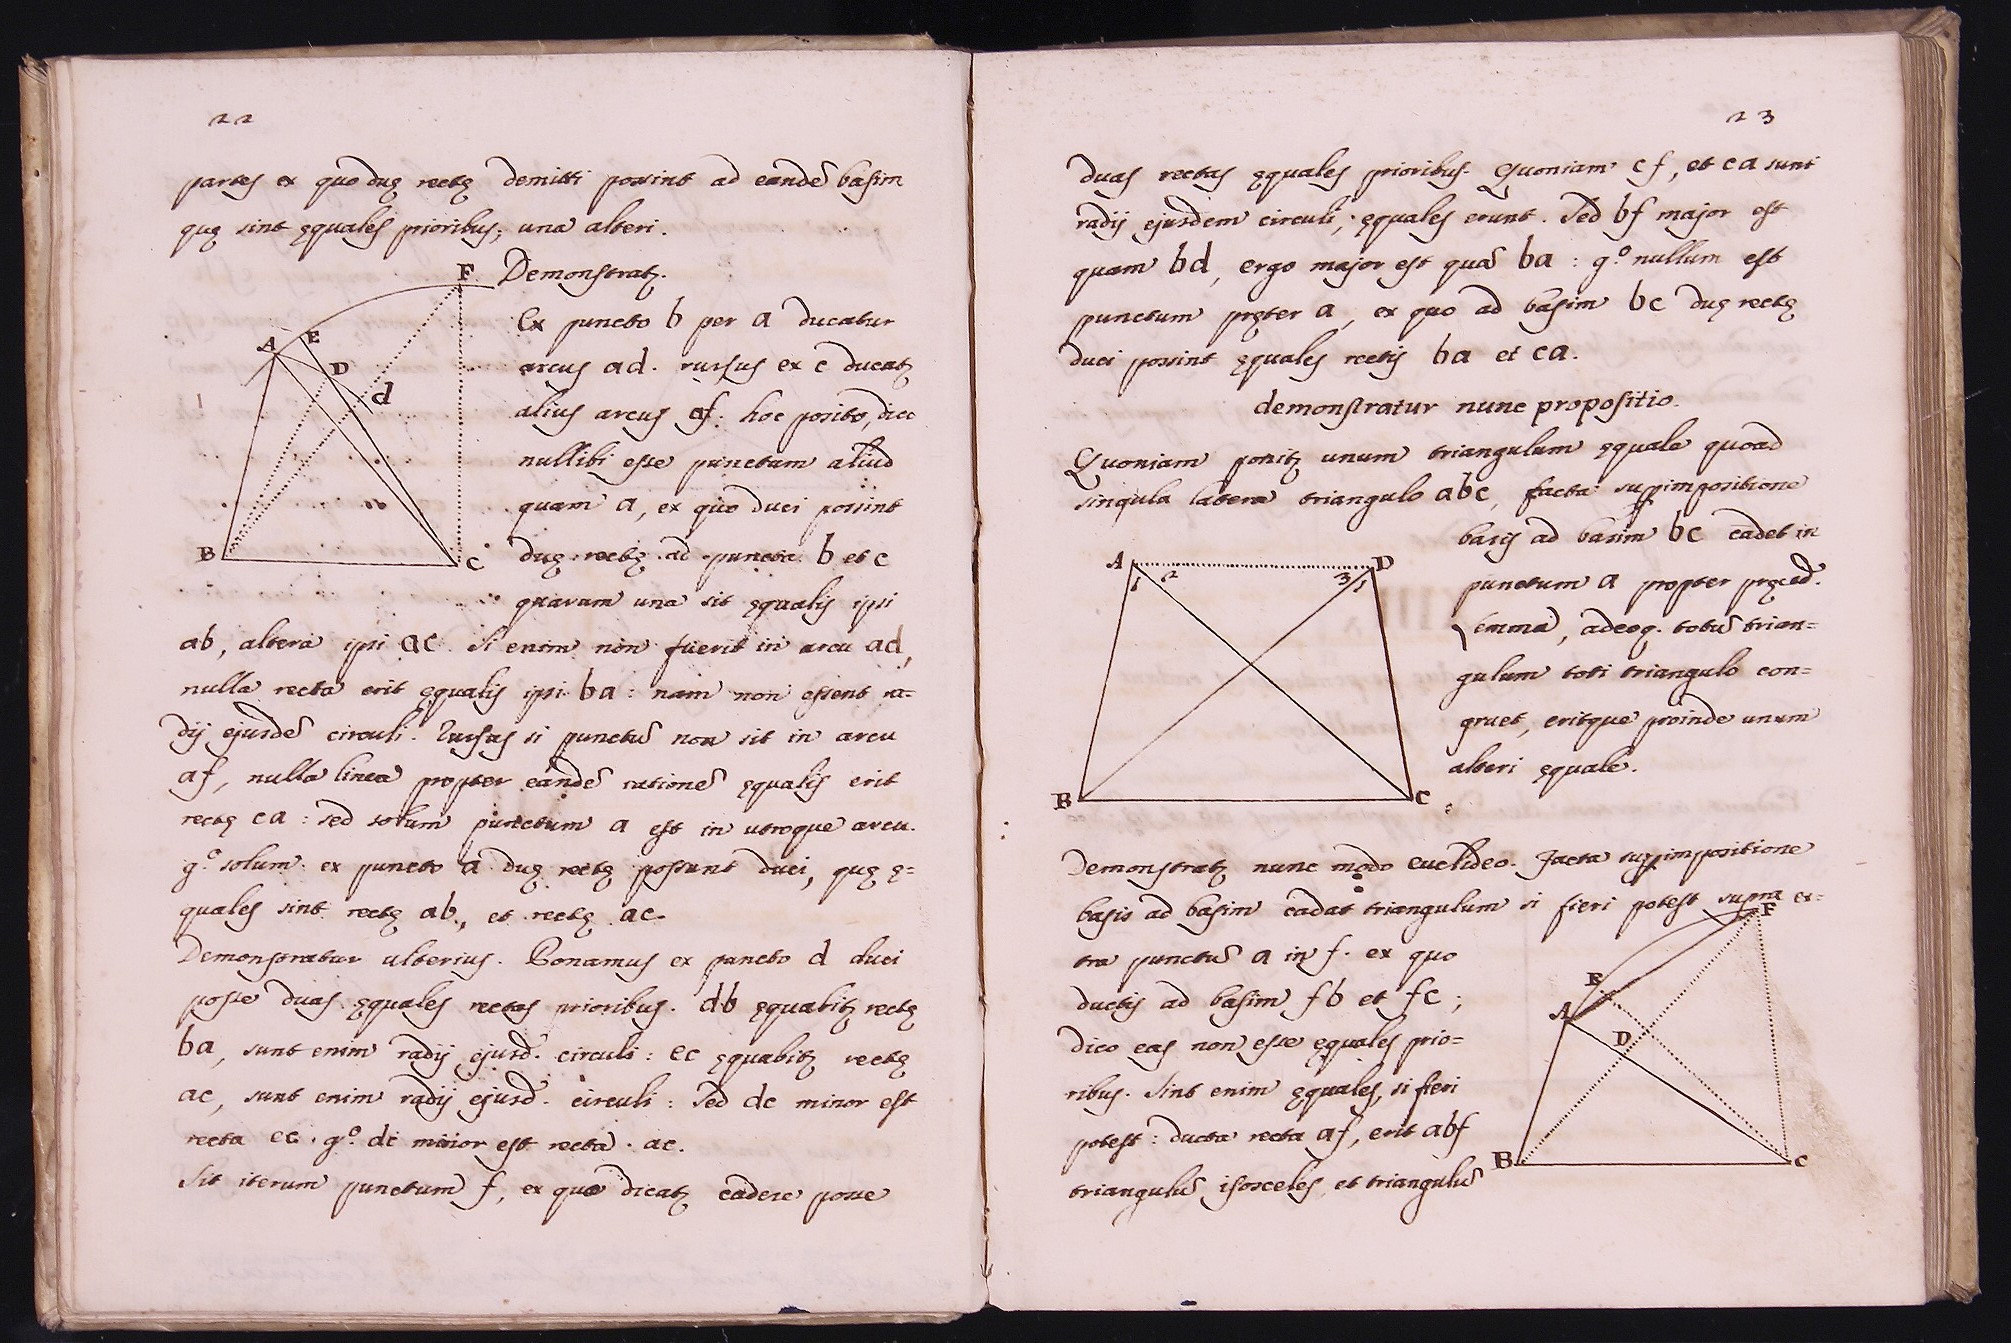 22
partes ex quo duę rectę demitti possint ad eandẽ basim
quę sint ęquales prioribus, una alteri.
F Demonstratꝫ.
Ex puncto b per a ducatur
A E
arcus ad. rursus ex c ducatꝫ
D
d
alius arcus af: hoc posito, dico
nullibi esse punctum aliud
quam a, ex quo duci possint
B C
duę rectę ad puncta b et c
quarum una sit ęqualis ipsi
ab, altera ipsi ac. Si enim non fuerit in arcu ad,
nulla recta erit ęqualis ipsi ba: nam non essent ra=
dij ejusdẽ circuli. Rursus si punctũ non sit in arcu
af, nulla linea propter eandẽ rationẽ ęqualis erit
rectę ca: sed solum punctum a est in utroque arcu.
g.º solum ex puncto a duę rectę possunt duci, quę ę=
quales sint rectę ab, et rectę ac.
Demonstratur ulterius. Ponamus ex puncto d duci
posse duas ęquales rectas prioribus. db ęquabitꝫ rectę
ba, sunt enim radij ejusd. circuli: ec ęquabitꝫ rectę
ac, sunt enim radij ejusd. circuli: Sed dc minor est
recta ec. g.º dc minor est recta ac.
Sit iterum punctum f, ex quo dicatꝫ cadere posse
23
duas rectas ęquales prioribus. Quoniam cf, et ca sunt
radij ejusdem circuli, ęquales erunt. Sed bf major est
quam bd, ergo major est quã ba: g.º nullum est
punctum pręter a, ex quo ad basim bc duę rectę
duci possint ęquales rectis ba et ca.
demonstratur nunc propositio.
Quoniam ponitꝫ unum triangulum ęquale quoad
singula latera triangulo abc, facta suppimpositione
basis ad basim bc cadet in
A 1 2 3 1 D
punctum a propter pręced.
lemma, adeoq. totũ trian=
gulum toti triangulo con=
gruet, eritque proinde unum
alteri ęquale.
B C
Demonstratꝫ nunc modo euclideo. Facta suppimpositione
basis ad basim cadat triangulum si fieri potest supra ex=
F
tra punctũ a in f. ex quo
E
ductis ad basim fb et fc;
A
D
dico eas non esse ęquales prio=
ribus. Sint enim ęquales, si fieri
potest: ducta recta af, erit abf
B C
triangulũ isosceles, et triangulũ